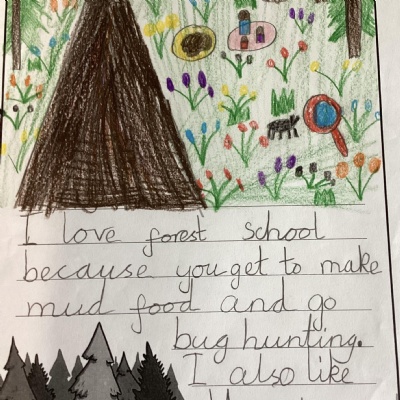 I love forest school
because you get to make
mud food and go
bug hunting.
I also like